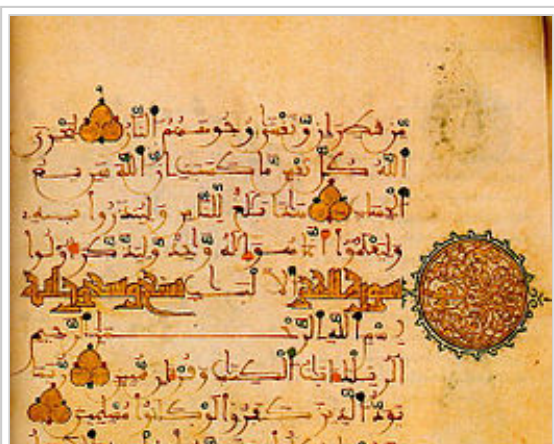 مّن قطران وتغشى وجوههم النار ليجزي
الله كل نفس ما كسبت إن الله سريع
الحساب هذا بلغ للناس ولينذروا به
وليعلموا أنما هو إله واحد وليذكر أولوا
سورة الحجر الالبب تسع وتسعون اية
بسم الله الرحمن الرحيم
الر تلك ايت الكتب وقران مبين ربما
يود الذين كفروا لو كانوا مسلمين